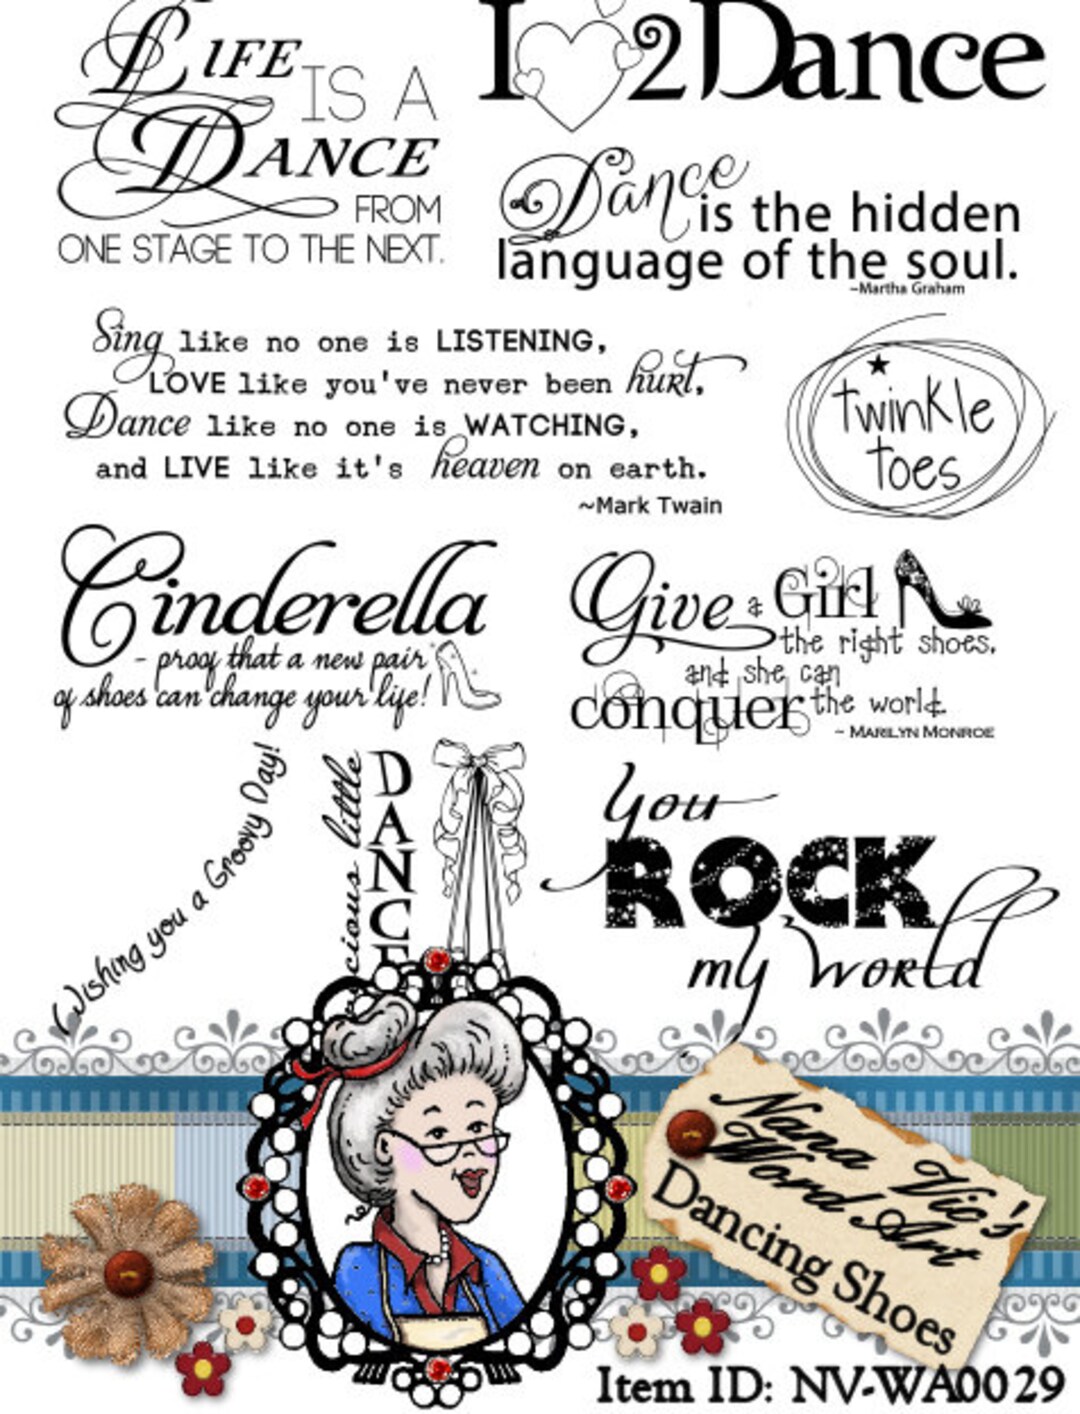 Life
IS A
Dance
FROM
ONE STAGE TO THE NEXT.
I 2 Dance
Dance
is the hidden
language of the soul.
~Martha Graham
Sing like no one is LISTENING,
LOVE like you've never been hurt,
Dance like no one is WATCHING,
and LIVE like it's heaven on earth.
~Mark Twain
twinkle
toes
Cinderella
- proof that a new pair
of shoes can change your life!
Give a Girl
the right shoes,
and she can
conquer the world.
~ Marilyn Monroe
Wishing you a Groovy Day!
little
You
ROCK
my World
Nana Vic's
Word Art
Dancing Shoes
Item ID: NV-WA0029